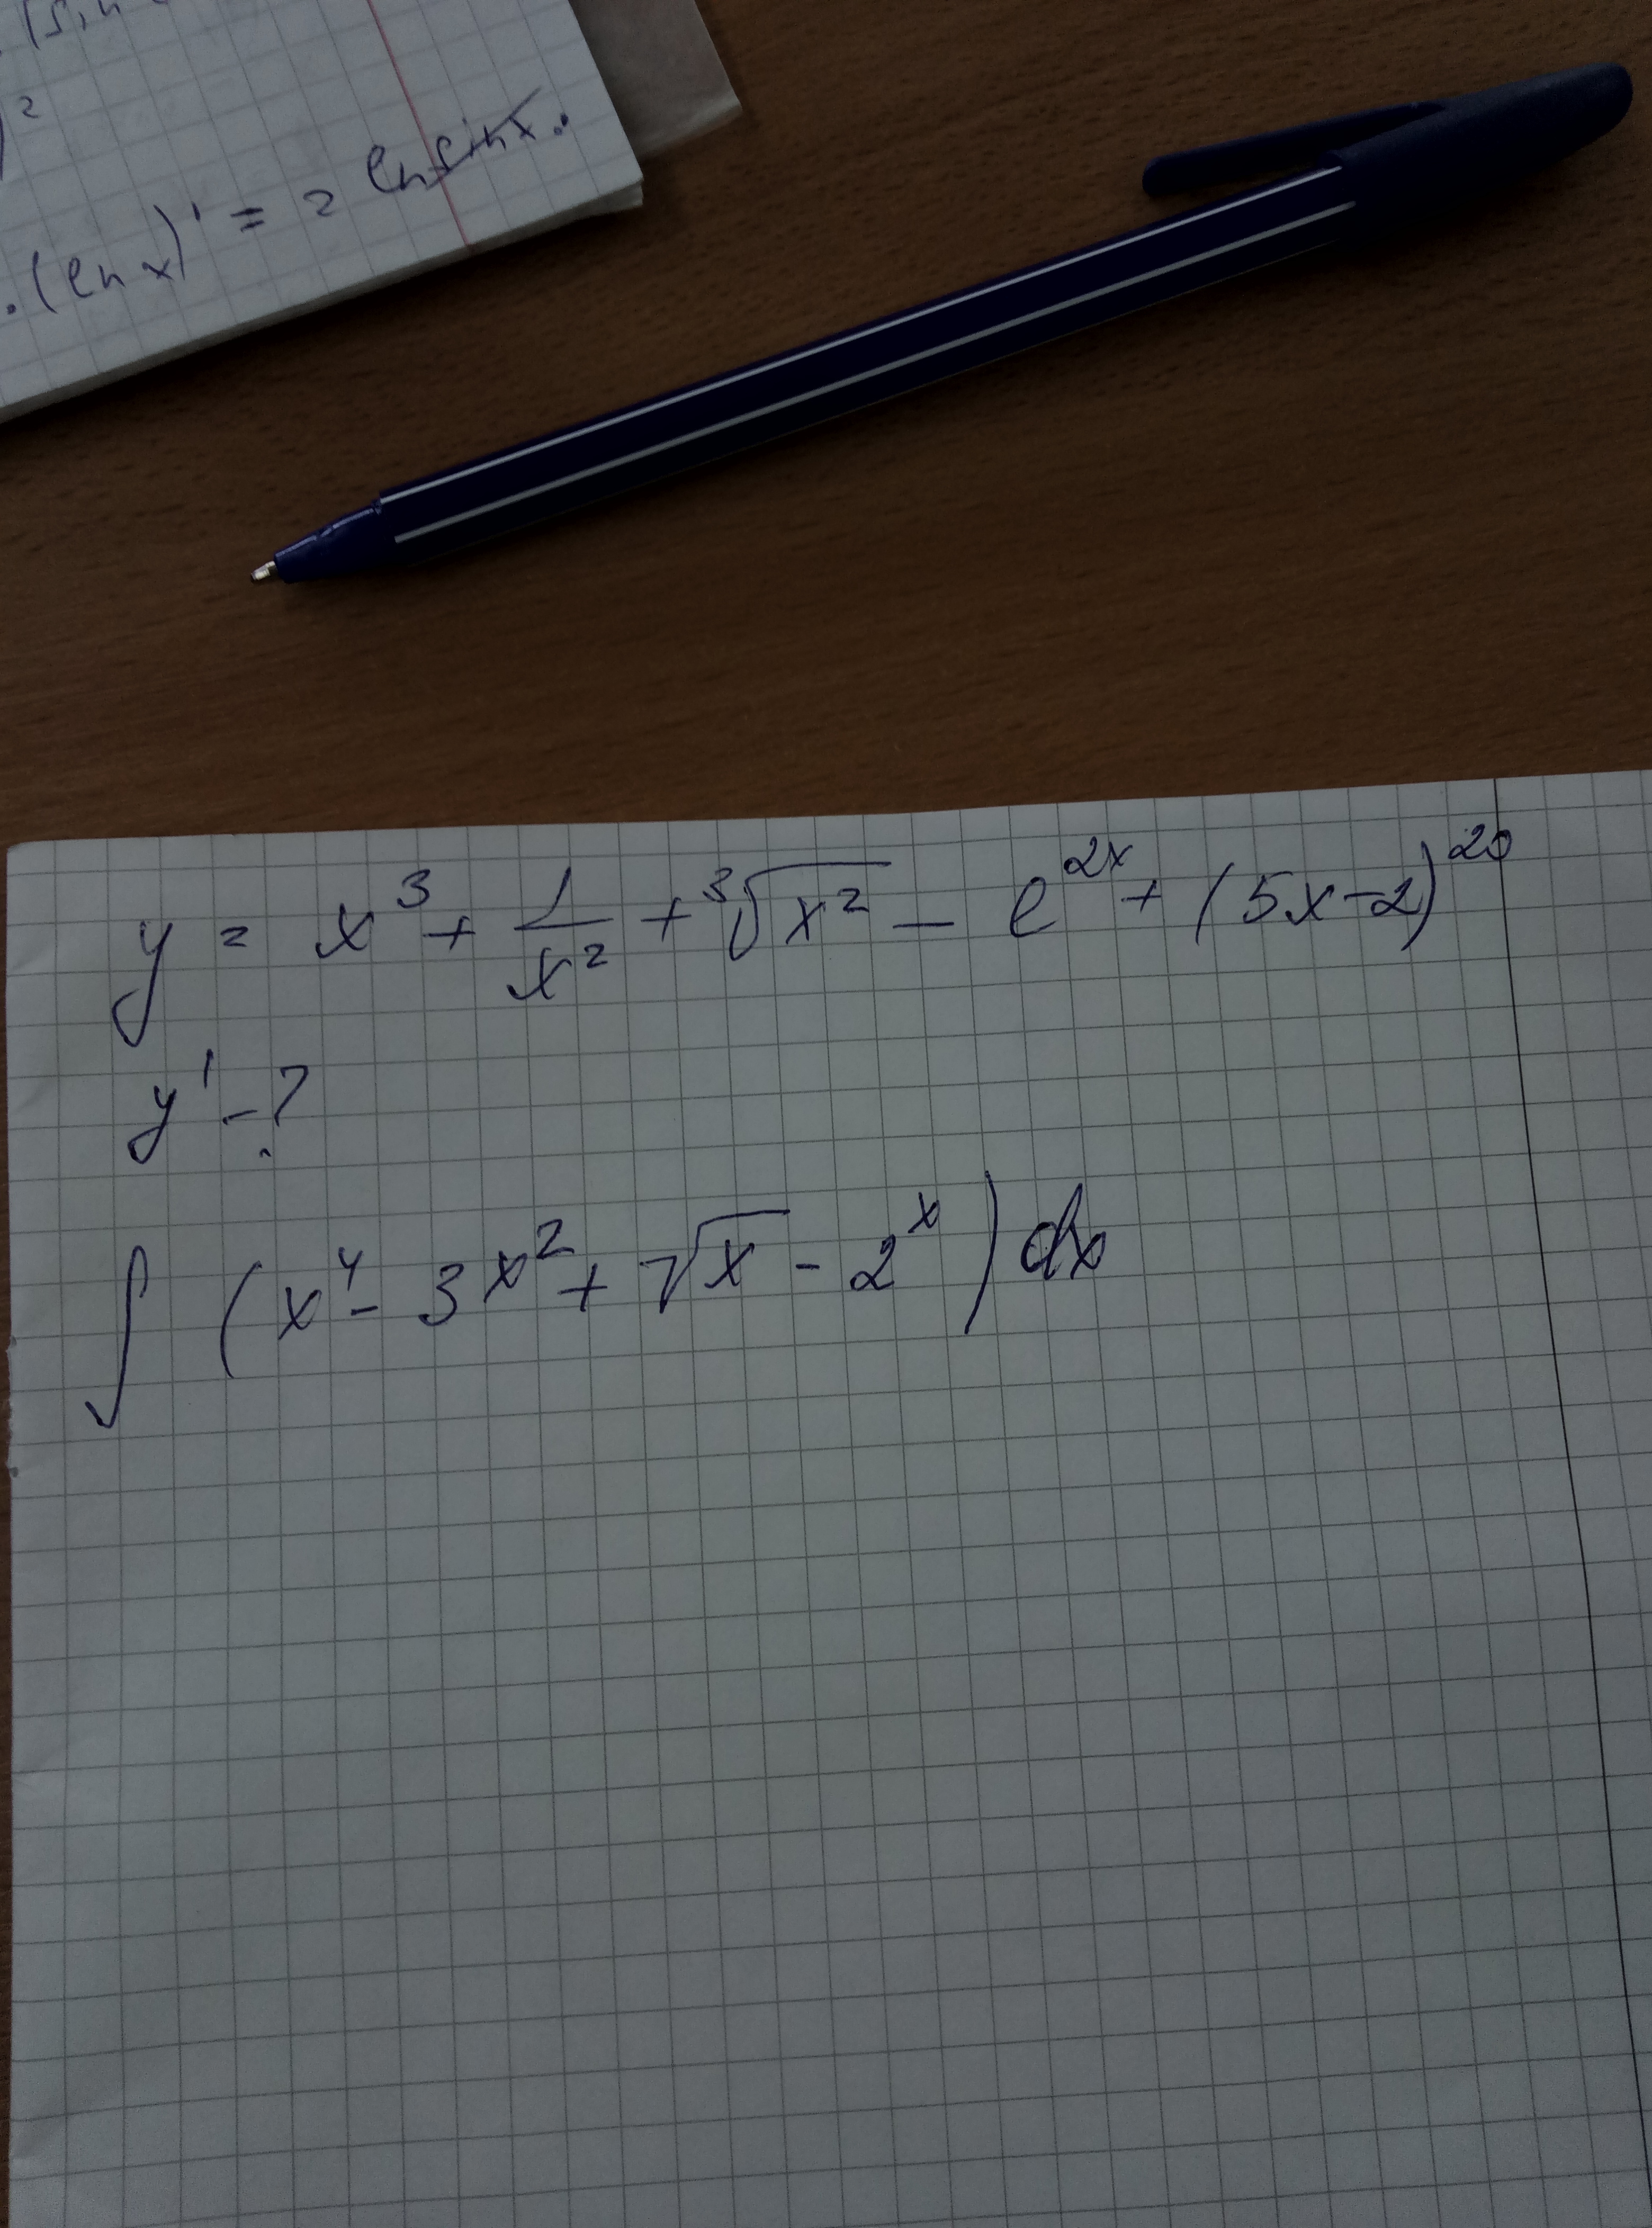 (sin
)²
·(ln x)' = 2 ln sin x ·
y = x³ + 1/x² + ³√x² − e^2x + (5x−2)^20
y' −?
∫ (x⁴ − 3x² + √x − 2^x) dx